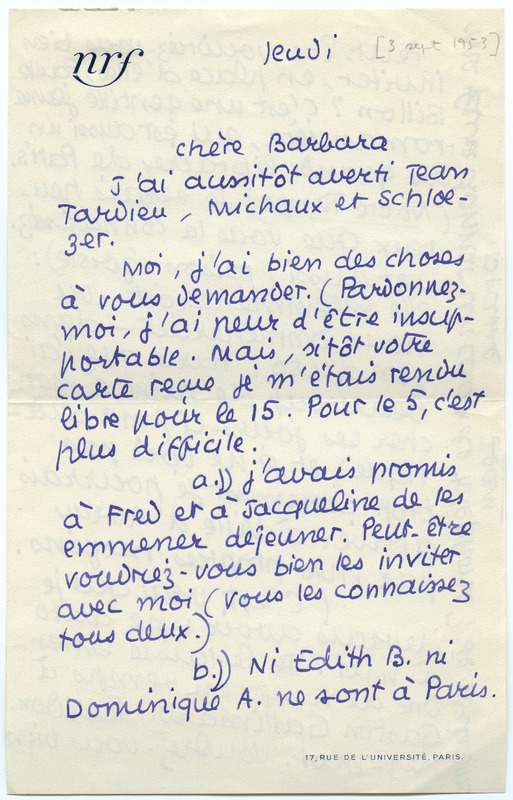 nrf
Jeudi [3 sept 1953]
chère Barbara
J'ai aussitôt averti Jean
Tardieu, Michaux et Schloe-
zer.
Moi, j'ai bien des choses
à vous demander. (Pardonnez-
moi, j'ai peur d'être insup-
portable. Mais, sitôt votre
carte reçue je m'étais rendu
libre pour le 15. Pour le 5, c'est
plus difficile.
a.)) j'avais promis
à Fred et à Jacqueline de les
emmener déjeuner. Peut-être
voudrez-vous bien les inviter
avec moi (vous les connaissez
tous deux.)
b.)) Ni Edith B. ni
Dominique A. ne sont à Paris.
17, RUE DE L'UNIVERSITÉ, PARIS.